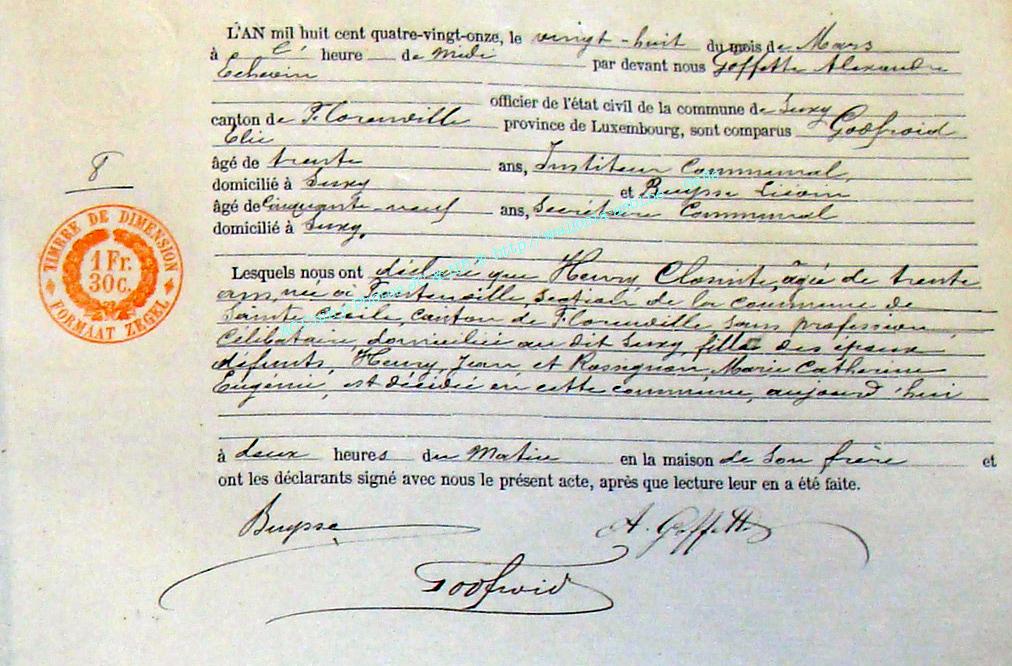 L'AN mil huit cent quatre-vingt-onze, le vingt-huit du mois de Mars
à heure de midi par devant nous Goffette Alexandre
Echevin
officier de l'état civil de la commune de Suxy
canton de Florenville province de Luxembourg, sont comparus Godfroid
Elie
âgé de trente ans, Instituteur Communal
8
domicilié à Suxy et Buysse
âgé de Cinquante neuf ans, Secrétaire Communal
domicilié à Suxy.
TIMBRE DE DIMENSION
1 Fr.
30 C.
FORMAAT ZEGEL
Lesquels nous ont déclaré que Henry, âgée de trente
ans, née à Fontenoille, section de la commune de
Sainte Cécile, canton de Florenville, sans profession,
Célibataire, domiciliée au dit Suxy, fille des époux
défunts, Henry, Jean, et Rossignon, Marie Catherine
Eugénie, est décédée en cette commune, aujourd'hui
à deux heures du Matin en la maison de son frère et
ont les déclarants signé avec nous le présent acte, après que lecture leur en a été faite.
Buysse A. Goffette
Godfroid